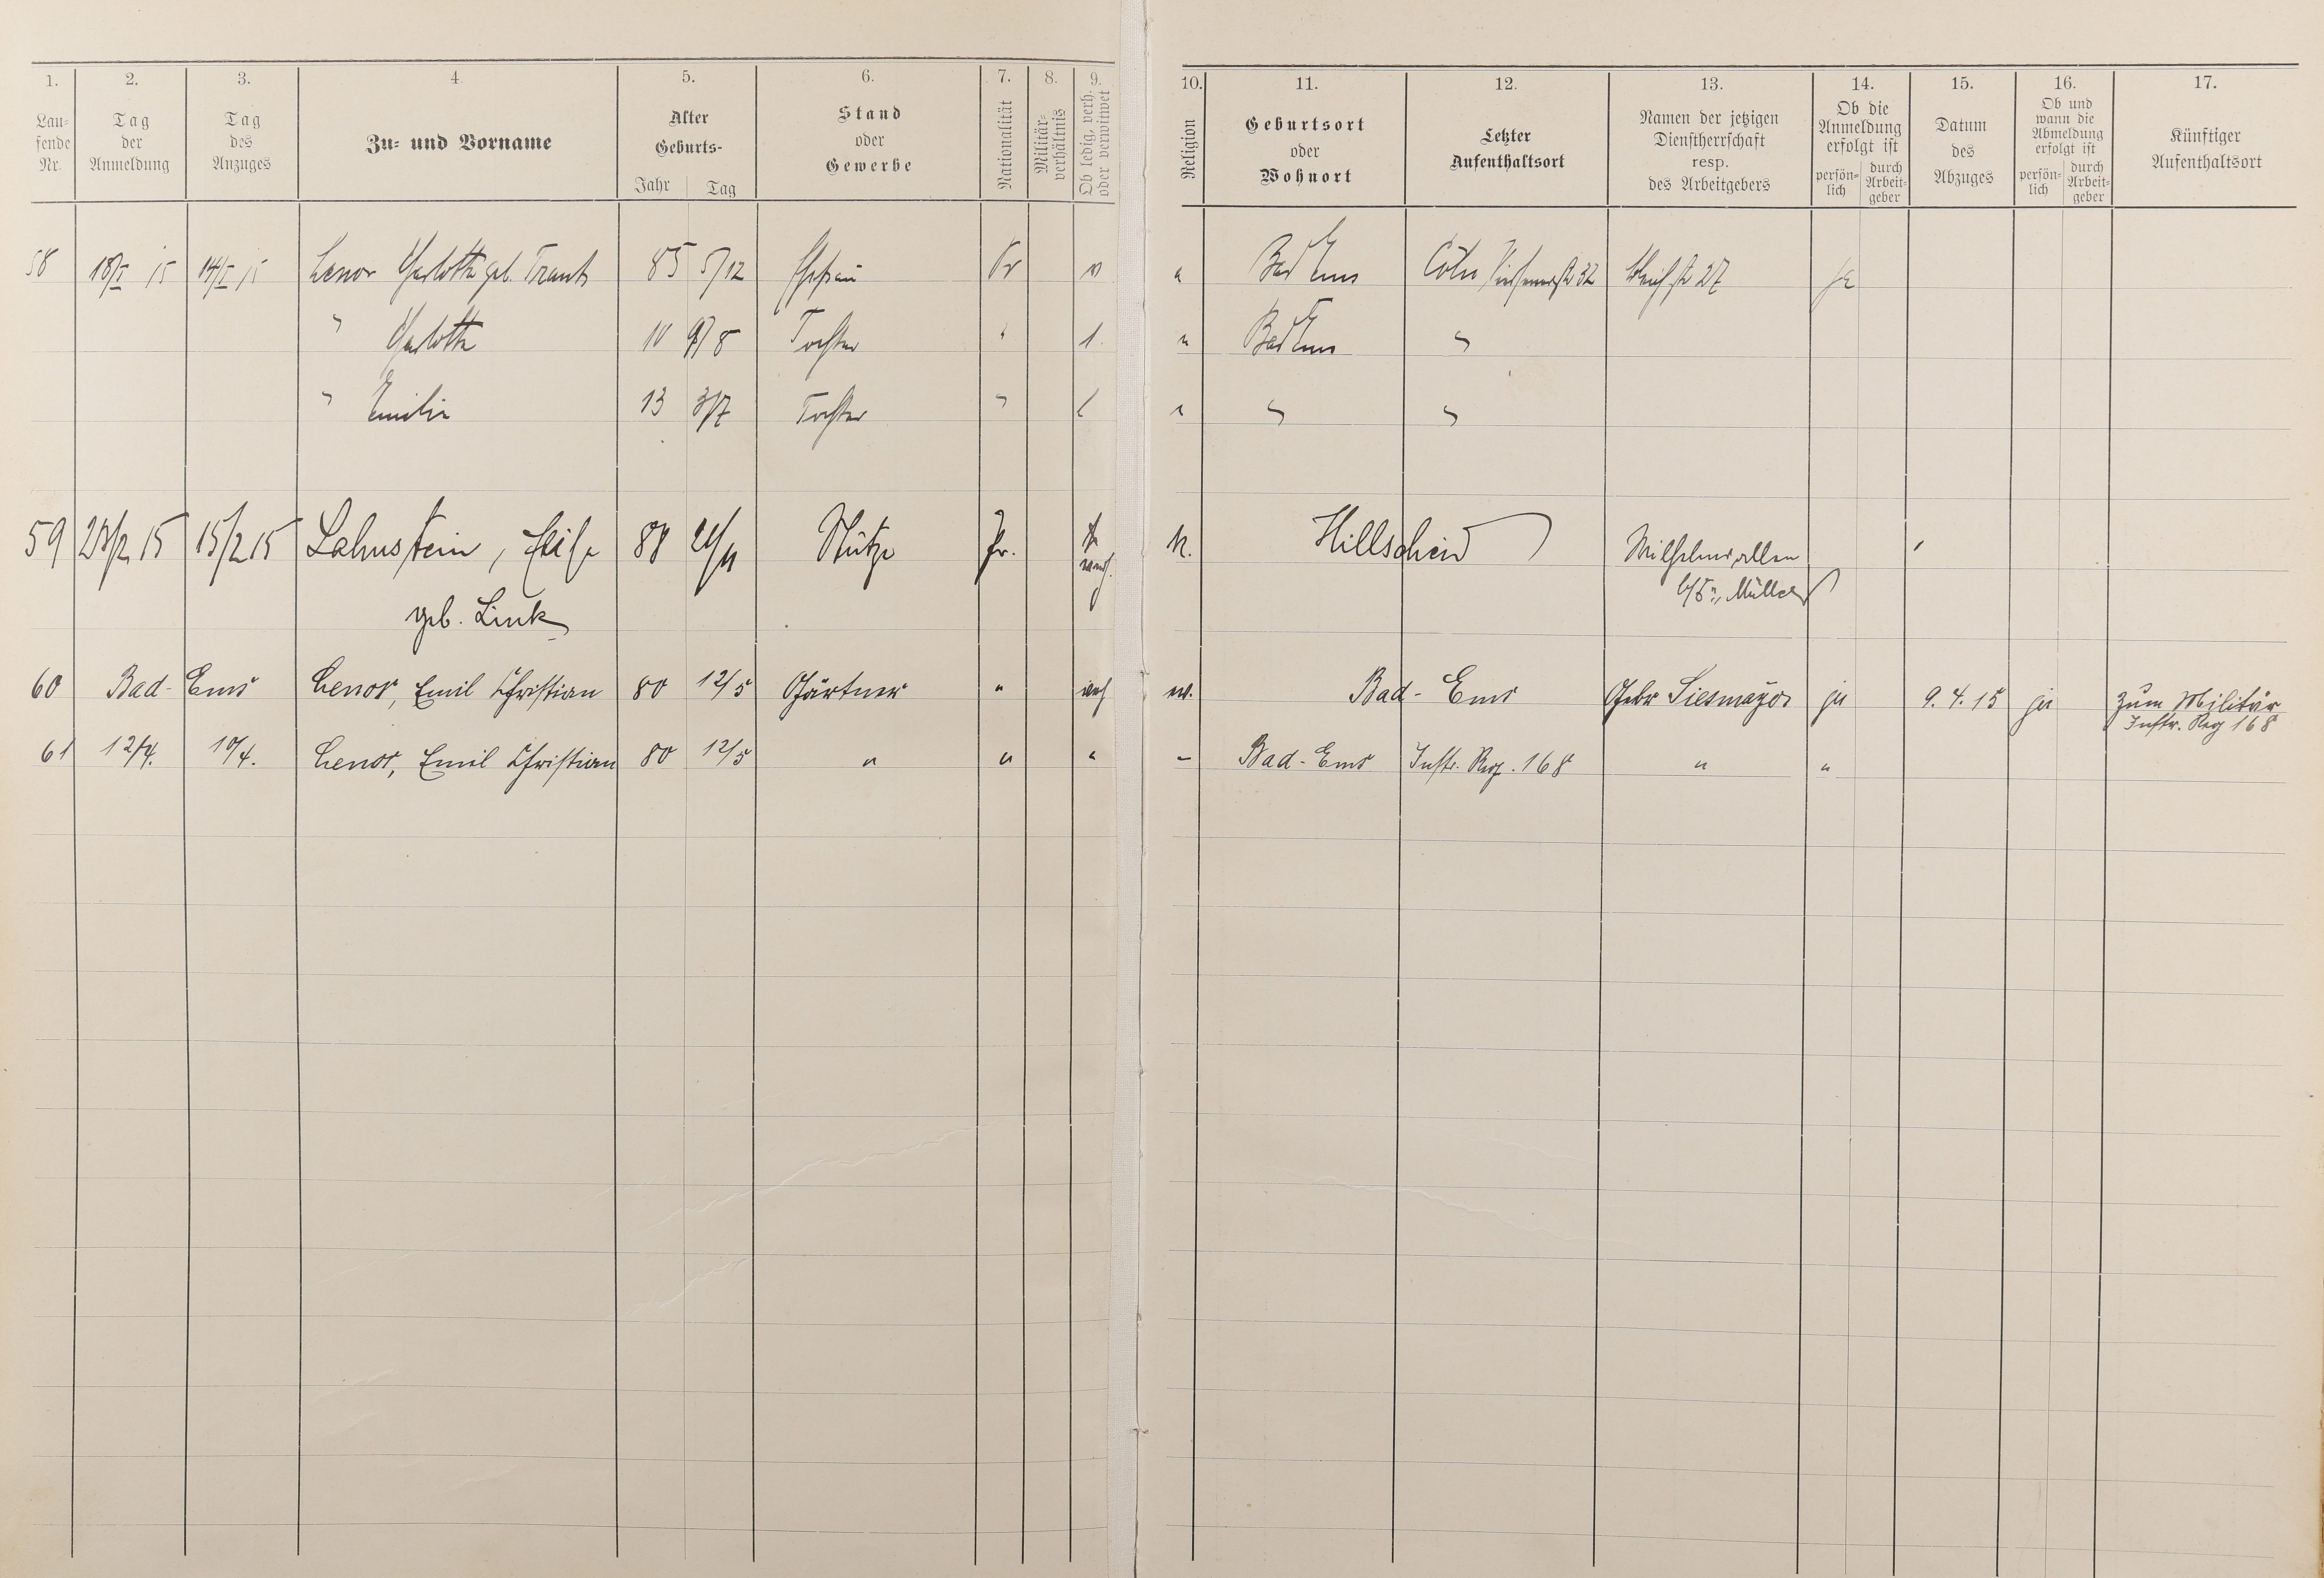 1. 2. 3. 4. 5. 6. 7. 8. 9. 10. 11. 12. 13. 14. 15. 16. 17.
Lau-
fende
Nr.
Tag
der
Anmeldung
Tag
des
Anzuges
Zu- und Vorname
Alter
Geburts-
Jahr Tag
Stand
oder
Gewerbe
Nationalität
Militär-
verhältnis
Ob ledig, verh.
oder verwitwet
Religion
Geburtsort
oder
Wohnort
Letzter
Aufenthaltsort
Namen der jetzigen
Dienstherrschaft
resp.
des Arbeitgebers
Ob die
Anmeldung
erfolgt ist
persön-
lich
durch
Arbeit-
geber
Datum
des
Abzuges
Ob und
wann die
Abmeldung
erfolgt ist
persön-
lich
durch
Arbeit-
geber
Künftiger
Aufenthaltsort
58 18/I 15 14/I 15 Lenor geb. 85 5/12 Ehefrau Pr Bad Ems Cöln 32 27 ja
" 10 8 Tochter " l. Bad Ems "
" Emilie 13 3/7 Tochter " l " "
59 15 15/2 15 Lahnstein, 88 Stütze Pr. K. Hillscheid Wilhelmsallee
geb. Link b/ Müller
60 Bad-Ems Lenor, Emil Christian 80 12/5 Gärtner " Bad-Ems Gebr Siesmayer ja 9.4.15 ja zum Militär
Inftr. Reg 168
61 12/4. 10/4. Lenor, Emil Christian 80 12/5 " " " - Bad-Ems Inftr. Reg. 168 " "